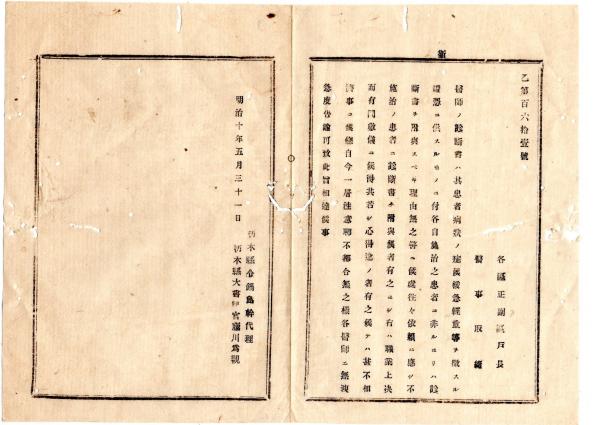 衛
乙第百六拾壹號
各區正副區戸長
醫事取締
醫師ノ診斷書ハ其患者病狀ノ症候緩急輕重等ヲ徵スル
證憑ニ供スルモノニ付各自施治之患者ニ非ルヨリハ診
斷書ヲ附與スベキ理由無之筈ニ候處往々依賴ニ應ジ不
施治ノ患者ニ診斷書ヲ附與候者有之ニヨリ右ハ職業上决
而有間敷儀ニ候得共若シ心得違ノ者有之候テハ甚不相
濟事ニ候條自今一層注意聊不都合無之樣各醫師ニ無洩
急度告諭可致此旨相達候事
明治十年五月三十一日
栃木縣令鍋島幹代理
栃木縣大書記官 川爲